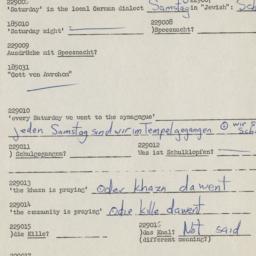 229002
'Saturday' in the local German dialect Samstag in "Jewish":
185010 229008
'Saturday night' )Speesnacht?
229009
Ausdrücke mit Speeznacht?
185031
"Gott von Avrohom"
229010
'every Saturday we went to the synagogue'
jeden Samstag sind wir im Tempel gegangen
229011 229012
) Schulgegangen? Was ist Schulklopfen?
229013
'the khazn is praying' Oder khazn dawent
229014
'the community is praying' Odie kille dawent
229015 229016
)die Kille? )das Kaal? Not said
(different meaning?)